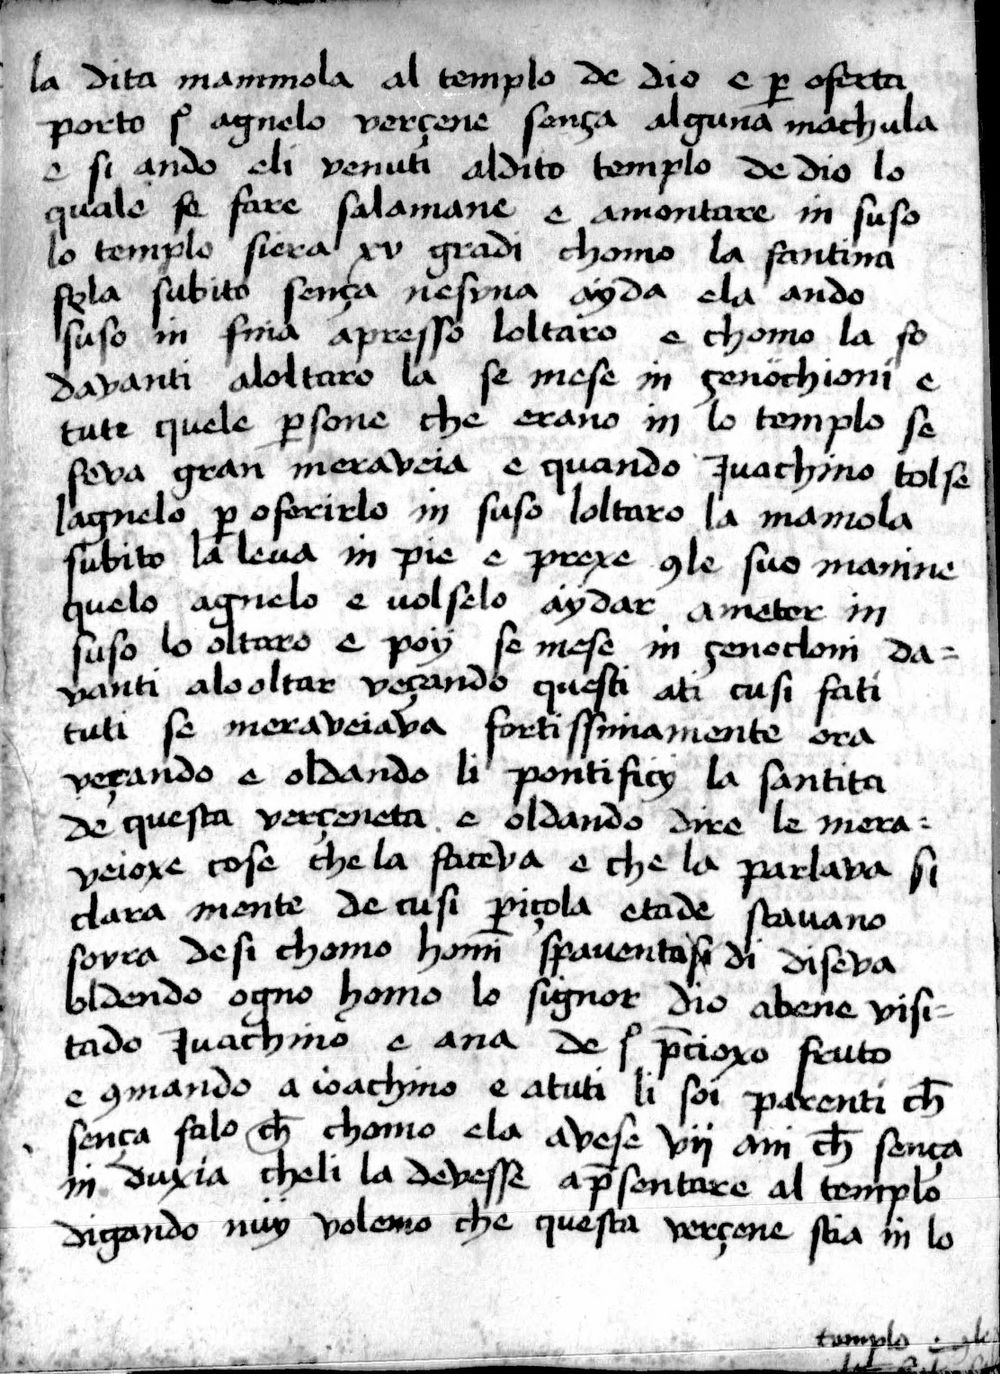 la dita mammola al templo de dio e ꝑ oferta
porto ſ̊ agnelo verçene sença alguna machula
e si ando eli venuti aldito templo de dio lo
quale fe fare salamane e amontare in suso
lo templo siera xv gradi chomo la fantina
sola subito sença nesvna ayda ela ando
suso in fina apresso loltaro e chomo la fo
davanti aloltaro la se mese in genochioni e
tute quele ꝑsone che erano in lo templo se
feva gran meraveia e quando Ivachino tolse
lagnelo ꝑ oferirlo in suso loltaro la mamola
subito la leva in pie e prexe ꝯle suo manine
quelo agnelo e volselo aydar ameter in
suso lo oltaro e poij se mese in çenocloni da=
vanti alooltar veçando questi ati cusi fati
tuti se meraveiava fortissimamente ora
veçando e oldando li pontificij la santita
de questa verçeneta e oldando dire le mera=
veioxe cose che la faceva e che la parlava si
clara mente de cusi ꝑiçola etade stavano
sovra desi chomo homī spaventasi di diseva
oldendo ogno homo lo signor dio abene visi=
tado Ivachino e ana de ſ̊ p̄cioxo fruto
e ꝯmando a ioachino e atuti li soi parenti ch̄
sença falo ch̄ chomo ela avese vij ani ch̄ sença
in duxia cheli la devesse ap̄sentare al templo
digando nuy volemo che questa verçene stia in lo
templo